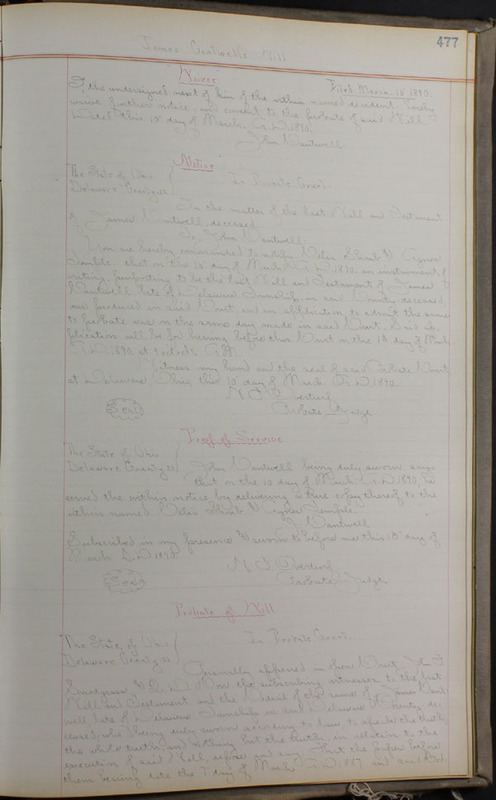 477
James Cantwell's Will
Waiver
Filed March 10 1890.
I, the undersigned next of kin of the within named decedent, hereby
waive further notice, and consent to the probate of said Will.
Dated this 10 day of March, A.D. 1890.
John Cantwell
Notice
The State of Ohio
Delaware County, ss
In Probate Court.
In the matter of the Last Will and Testament
of James Cantwell, deceased.
To John Cantwell:
You are hereby commanded to notify Cyrus
that on the 10 day of March A.D. 1890, an instrument of
writing, purporting to be the last Will and Testament of James
Cantwell, late of Delaware Township, in said County, deceased,
was produced in said Court, and an application to admit the same
to probate was on the same day made in said Court. Said ap-
plication will be for hearing before this Court on the 10 day of March
A.D. 1890 at o'clock
Witness my hand and the seal of said Probate Court
at Delaware Ohio, this 10" day of March A.D. 1890.
Seal
Probate Judge
Proof of Service
The State of Ohio
Delaware County ss
John Cantwell being duly sworn says
that on the 10 day of March A.D. 1890, he
served the within notice by delivering a true copy thereof to the
within named & Cyrus
J. Cantwell
Subscribed in my presence & sworn to before me this 10" day of
March A.D. 1890.
Seal
Probate Judge
Probate of Will
The State of Ohio
Delaware County ss
In Probate Court.
Personally appeared in open Court, John
the subscribing witnesses to the last
Will and Testament and the of the same of James Cant-
well late of Delaware Township in said Delaware County, de-
ceased, who being duly sworn according to law to speak the truth
the whole truth and nothing but the truth, in relation to the
execution of said Will, depose and say: That the paper before
them bearing date the 7 day of March A.D. 1887 and